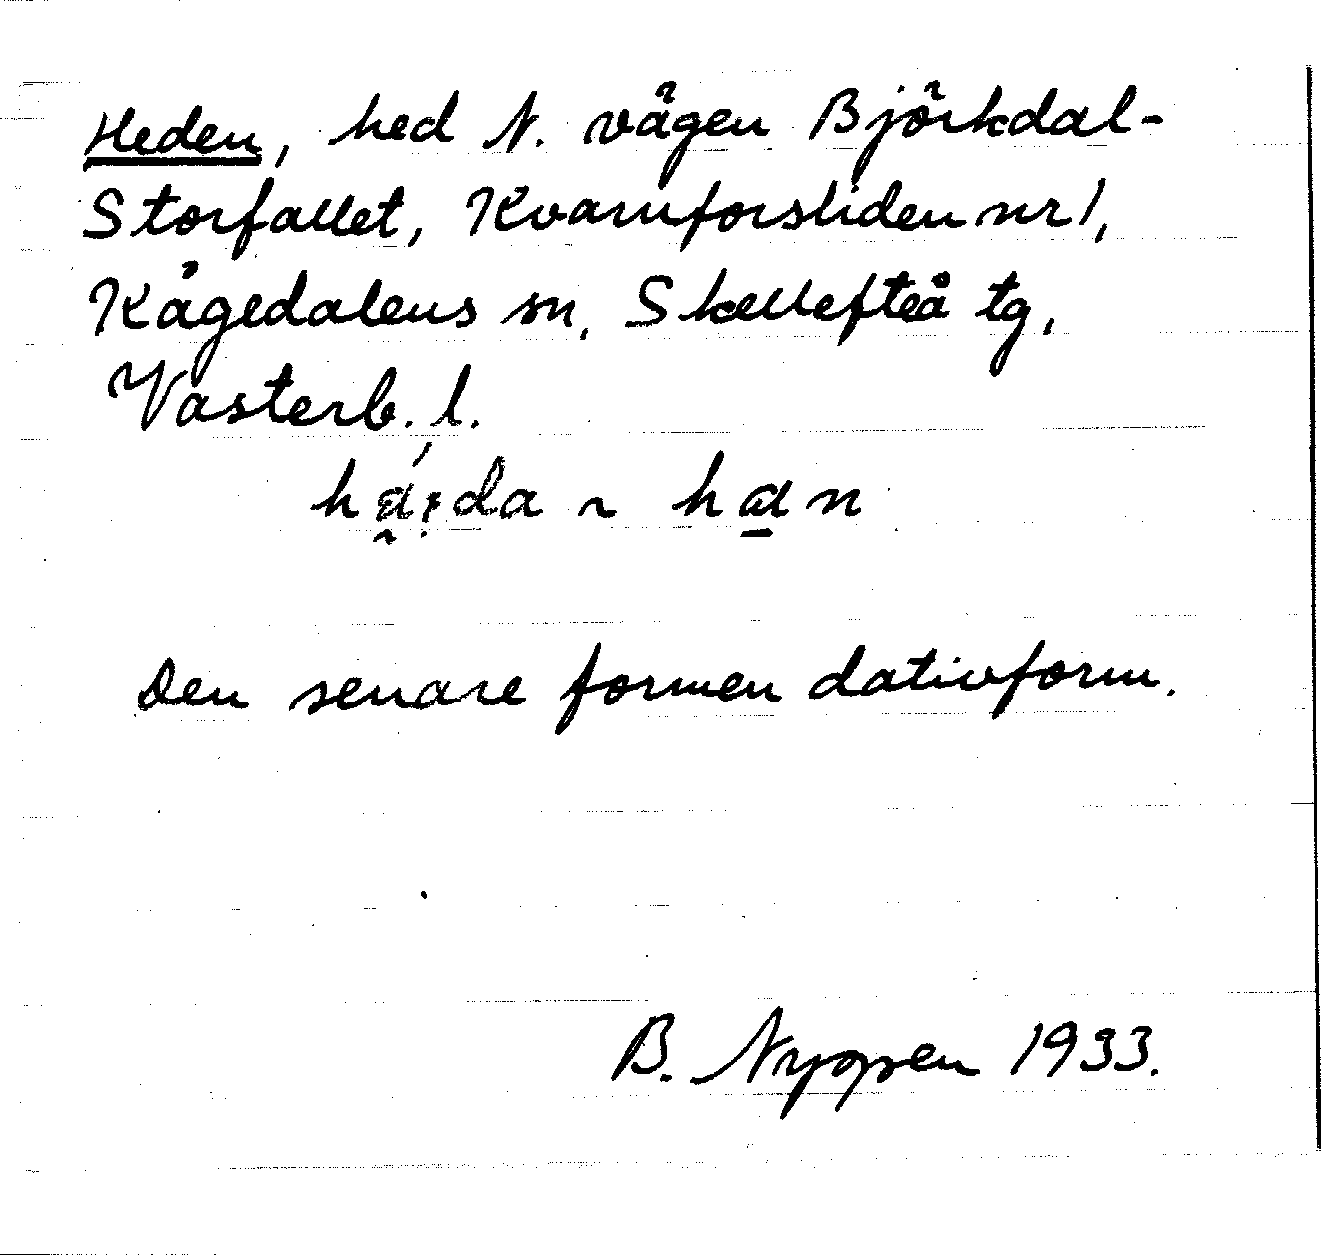 Heden, hed N. vägen Björkdal-
Storfallet, Kvarnforsliden nr 1,
Kågedalens sn, Skellefteå tg,
Västerb. l.
da ~
Den senare formen dativform.
B. Nygren 1933.